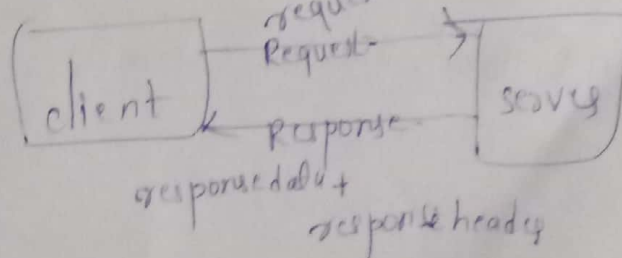 Request
client
server
Response
response data +
response header